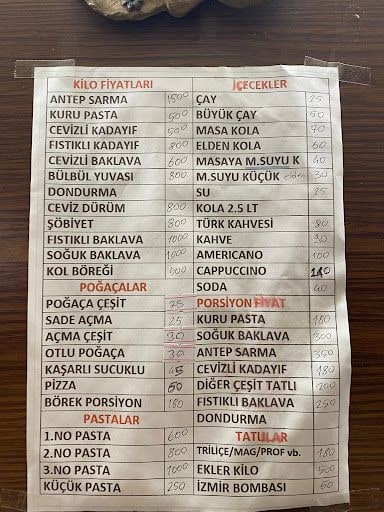 KİLO FİYATLARI
ANTEP SARMA 1500
KURU PASTA 500
CEVİZLİ KADAYIF 500
FISTIKLI KADAYIF 800
CEVİZLİ BAKLAVA 600
BÜLBÜL YUVASI 800
DONDURMA
CEVİZ DÜRÜM 800
ŞÖBİYET 800
FISTIKLI BAKLAVA 1000
SOĞUK BAKLAVA 1000
KOL BÖREĞİ 500
POĞAÇALAR
POĞAÇA ÇEŞİT 25
SADE AÇMA 25
AÇMA ÇEŞİT 30
OTLU POĞAÇA 30
KAŞARLI SUCUKLU 45
PİZZA 50
BÖREK PORSİYON 180
PASTALAR
1.NO PASTA 600
2.NO PASTA 800
3.NO PASTA 1000
KÜÇÜK PASTA 250
İÇECEKLER
ÇAY 25
BÜYÜK ÇAY 50
MASA KOLA 70
ELDEN KOLA 60
MASAYA M.SUYU K 40
M.SUYU KÜÇÜK elden 30
SU 25
KOLA 2.5 LT
TÜRK KAHVESİ 80
KAHVE
AMERICANO 100
CAPPUCCINO
SODA 40
PORSİYON FİYAT
KURU PASTA 180
SOĞUK BAKLAVA 300
ANTEP SARMA 350
CEVİZLİ KADAYIF 180
DİĞER ÇEŞİT TATLI 200
FISTIKLI BAKLAVA 250
DONDURMA
TATLILAR
TRİLİÇE/MAG/PROF vb. 180
EKLER KİLO 500
İZMİR BOMBASI 50